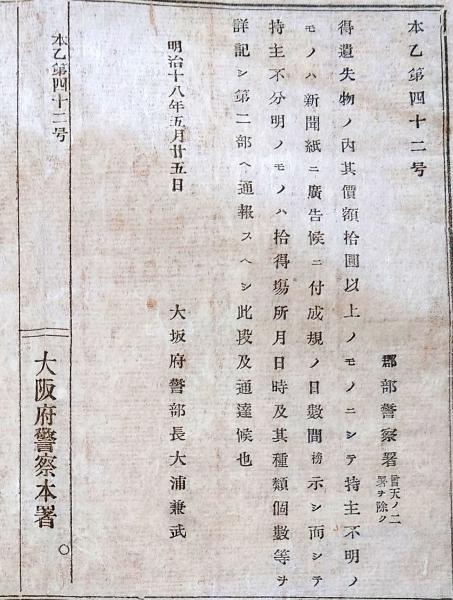 本乙第四十二号
郡部警察署 曾天ノ二署ヲ除ク
得遺失物ノ内其價額拾圓以上ノモノニシテ持主不明ノ
モノハ新聞紙ニ廣告候ニ付成規ノ日數間榜示シ而シテ
持主不分明ノモノハ拾得場所月日時及其種類個數等ヲ
詳記シ第二部ヘ通報スヘシ此段及通達候也
明治十八年五月廿五日
大坂府警部長大浦兼武
本乙第四十二号
大阪府警察本署